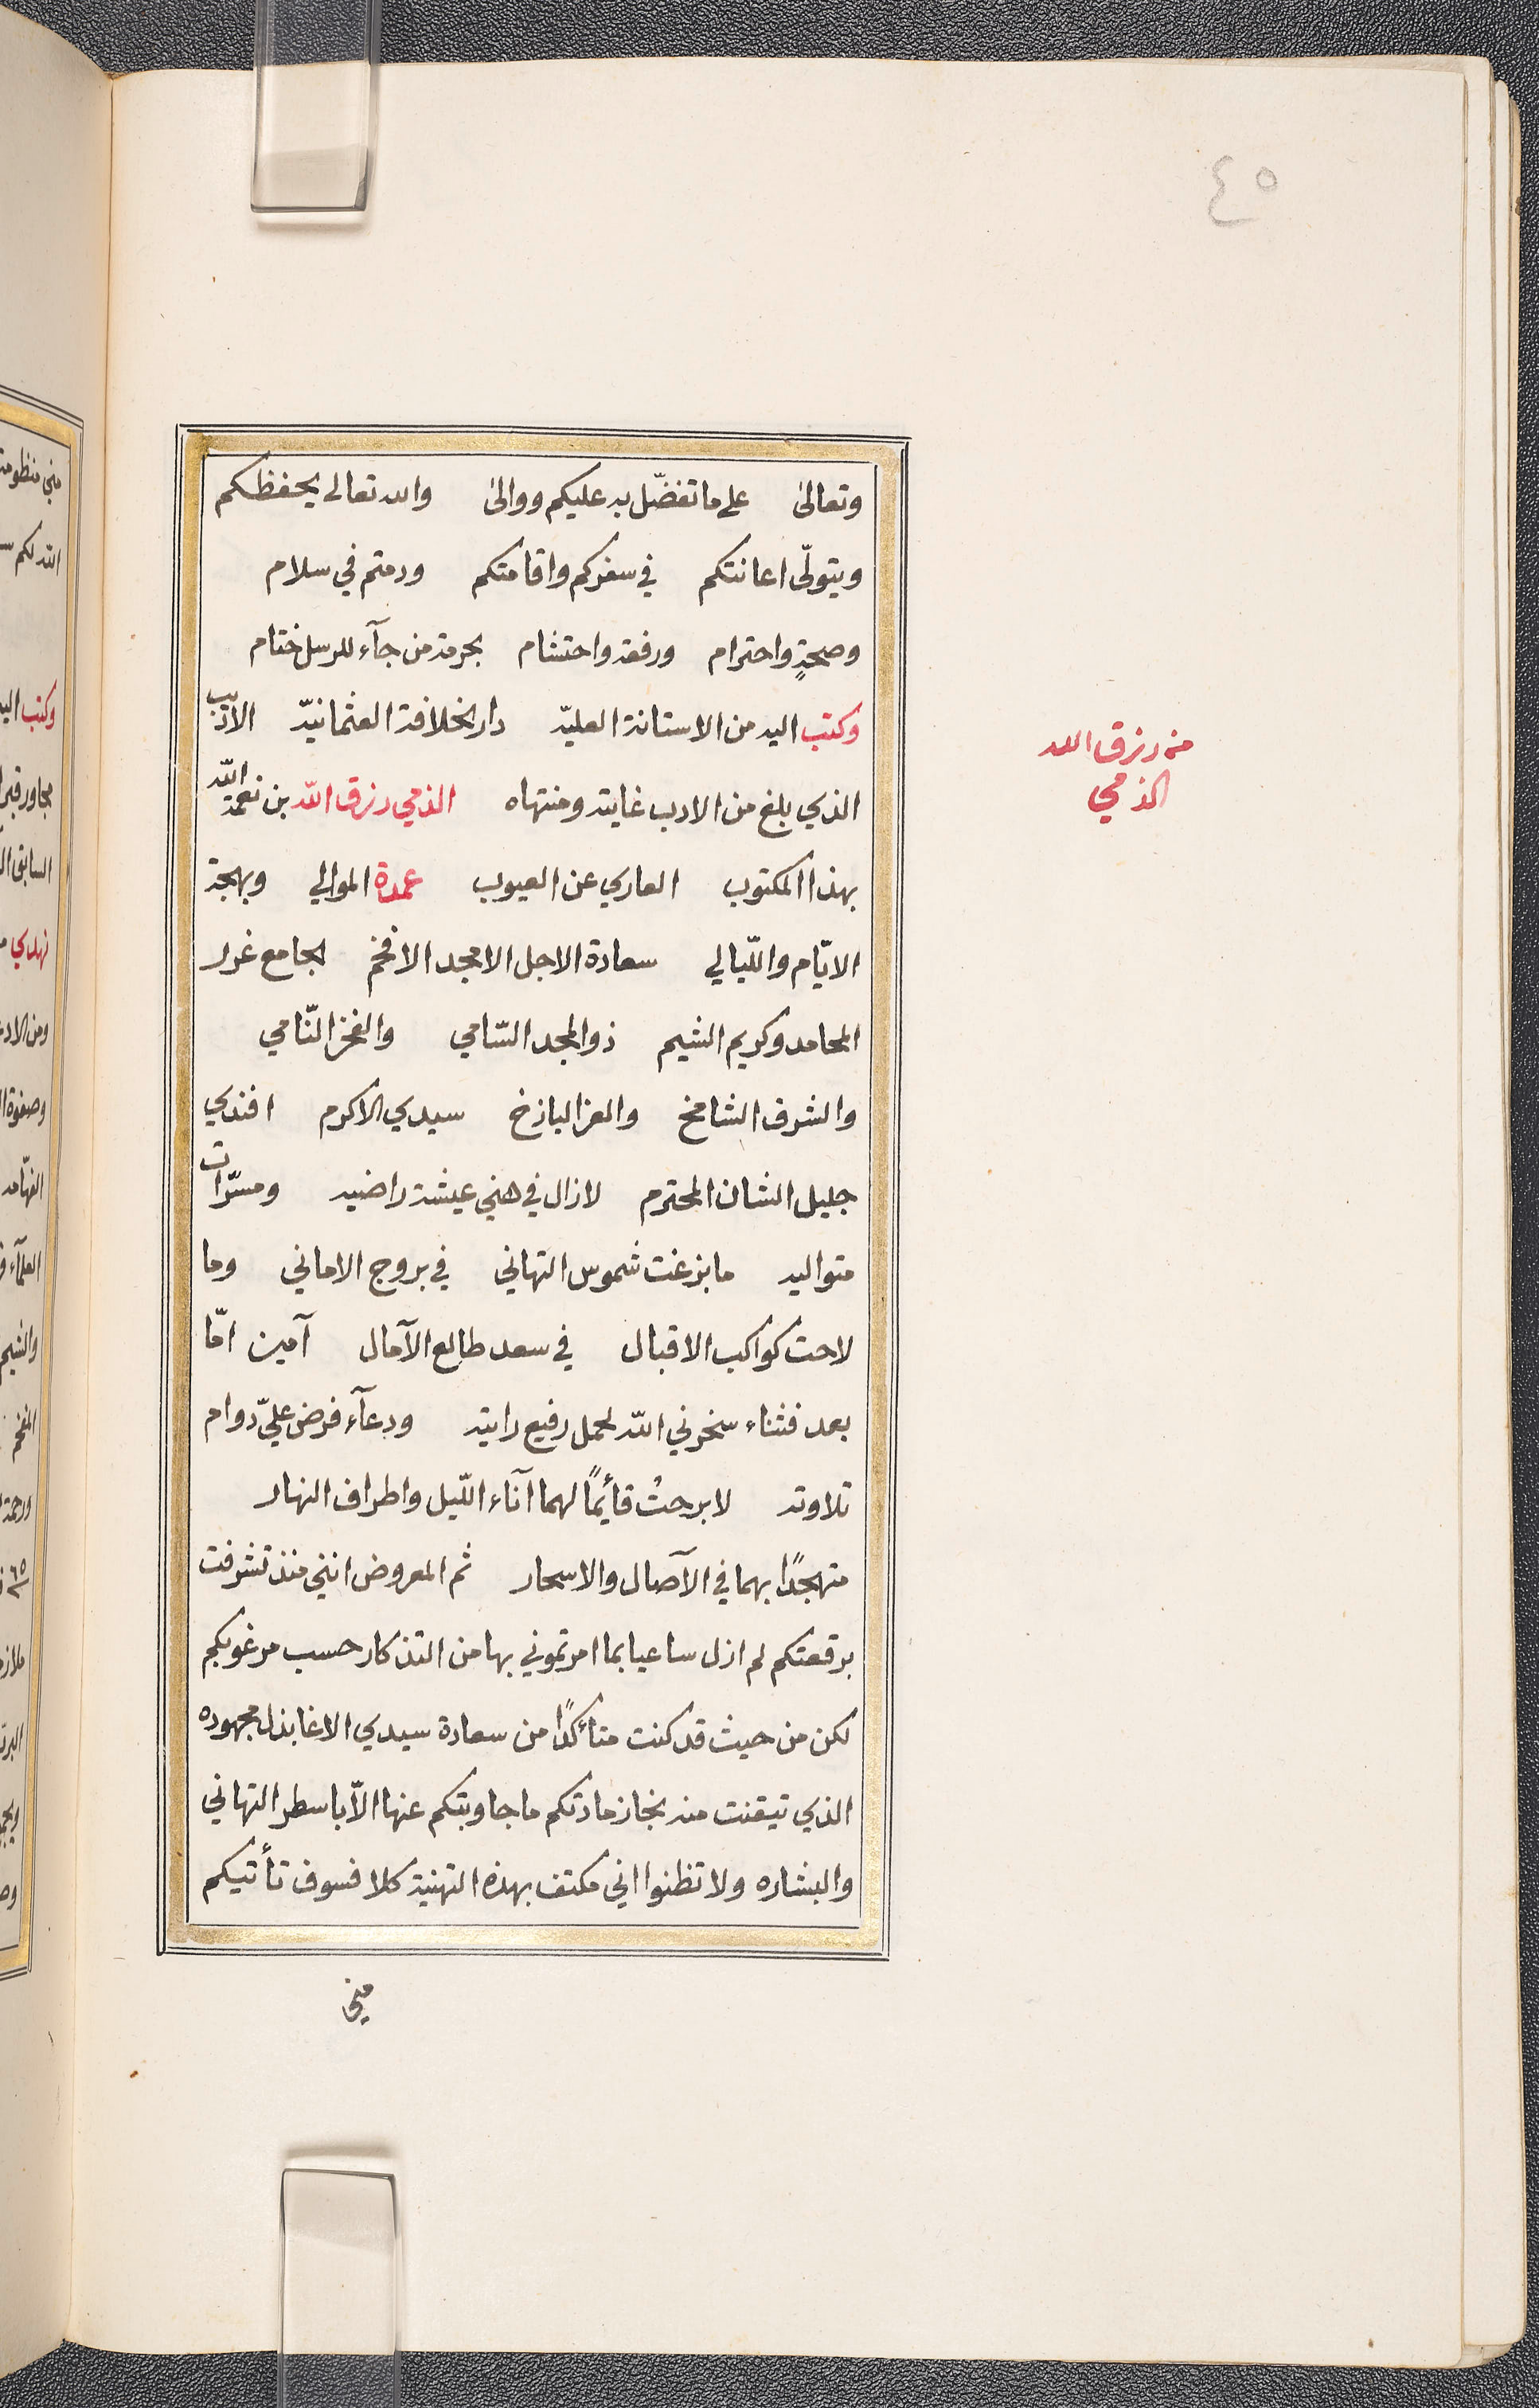 ٤٥
وتعالى على ما تفضّل به عليكم ووالى والله تعالى يحفظكم
ويتولّى اعانتكم في سفركم واقامتكم ودمتم في سلام
وصحةٍ واحترام ورفعة واحتشام بحرمة من جآء للرسل ختام
وكتب اليه من الاستانة العليّه دار الخلافة العثمانيّه الاديب
الذي بلغ من الادب غايته ومنتهاه الذمي رزق الله بن نعمة الله
بهذا المكتوب العاري عن العيوب عمدة الموالي وبهجة
الايّام واللّيالي سعادة الاجل الامجد الافخم الجامع غرر
المحامد وكريم الشيم ذو المجد السّامي والفخر النّامي
والشرف الشامخ والعز الباذخ سيدي الاكرم افندي
جليل الشان المحترم لازال في هني عيشة راضيه ومسرّات
متواليه ما بزغت شموس التهاني في بروج الاماني وما
لاحت كواكب الاقبال في سعد طالع الآمال آمين امّا
بعد فثناء سخرني الله لحمل رفيع رايته ودعآء فرض عليّ دوام
تلاوته لا برحتُ قائمًا لهما آناء اللّيل واطراف النهار
متهجدًا بهما في الآصال والاسحار ثم المعروض انني منذ تشرفت
برقعتكم لم ازل ساعيا بما امرتموني بها من التذكار حسب مرغوبكم
لكن من حيث قد كنت متأكدًا من سعادة سيدي الاغا بذل مجهوده
الذي تيقنت منه نجاز مادتكم ما جاوبتكم عنها الاّ باسطر التهاني
والبشاره ولا تظنوا اني مكتف بهذه التهنية كلا فسوف تأتيكم
مني
من رزق الله
الذمي